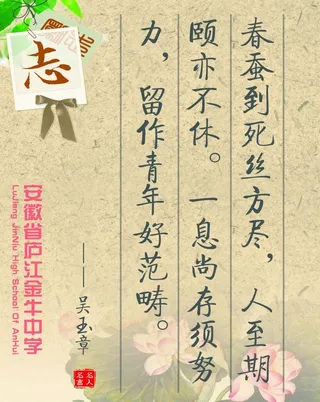 春蚕到死丝方尽，人至期
颐亦不休。一息尚存须努
力，留作青年好范畴。
——吴玉章
名人
名言
志
安徽省庐江金牛中学
LuJiang JinNiu High School Of AnHui